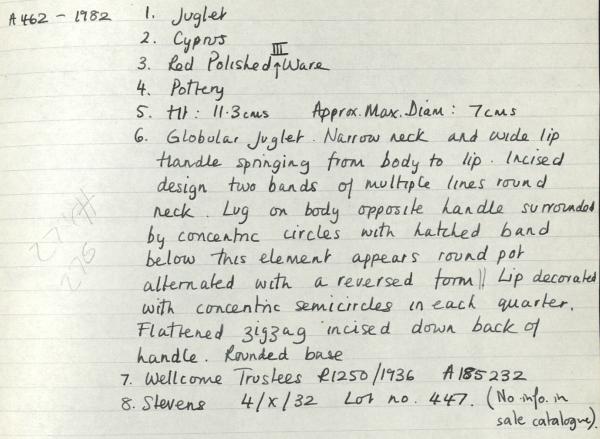 A462 - 1982 1. Juglet
2. Cyprus
3. Red Polished III Ware
4. Pottery
5. Ht: 11.3cms Approx. Max. Diam: 7cms
6. Globular Juglet. Narrow neck and wide lip
Handle springing from body to lip. Incised
design two bands of multiple lines round
neck. Lug on body opposite handle surrounded
by concentric circles with hatched band
below this element appears round pot
alternated with a reversed form || Lip decorated
with concentric semicircles in each quarter.
Flattened zigzag incised down back of
handle. Rounded base
7. Wellcome Trustees R1250/1936 A185232
8. Stevens 4/X/32 Lot no. 447. (No info. in
sale catalogue).
276